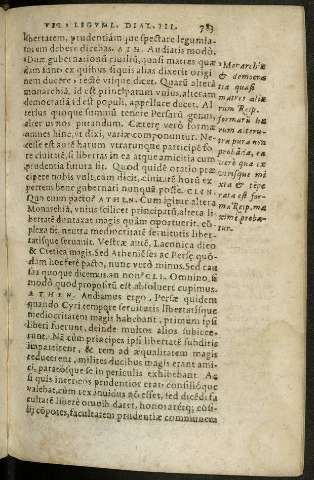 VEL LEGVML. DIAL. III. 783
libertatem, prudentiámque spectare legumla-
torem debere dicebas. ATH. Audiatis modò.
Duæ gubernationũ ciuiliũ, quasi matres quæ-
dam sunt: ex quibus siquis alias dixerit origi-
nem ducere, rectè vtique dicet. Quarũ alterã
monarchiã, id est principatum vnius, alteram
democratiã id est populi, appellare ducet. Al
terius quoque summũ tenere Persarũ genus,
alterius nos putandum. Cæteræ verò formæ
omnes hinc, vt dixi, variæ componuntur. Ne-
cesse est autẽ harum vtrarunque participẽ fo-
re ciuitatẽ, si libertas in ea atque amicitia cum
prudentia futura sit. Quod quidẽ oratio præ-
cipere nobis vult, cùm dicit, ciuitatẽ horũ ex-
pertem bene gubernari nunquã posse. CLIN.
Qua cum pacto? ATHEN. Cum igitur altera
Monarchiã, vnius scilicet principatũ, altera li-
bertatẽ duntaxat magis quàm oportuerit, cõ-
plexa sit, neutra mediocritatẽ seruitutis liber-
tatisque seruauit. Vestræ autẽ, Laconica dico
& Cretica magis. Sed Atheniẽses ac Persæ quõ-
dam hoc ferè pacto, nunc verò minus. Sed cau
sas quoque dicemus. an non? CLI. Omnino, si
modò quod propositũ est absoluere cupimus.
ATHEN. Audiamus ergo. Persæ quidem
quando Cyri tempore seruitutis libertatisque
mediocritatem magis habebant, primum ipsi
liberi fuerunt, deinde multos alios subiece-
runt. Nã cùm principes ipsi libertatẽ subditis
impartirent, & tem ad æqualitatem magis
reducerent, milites ducibus magis erant ami-
ci, paratósque se in periculis exhibebant. Ac
si quis inter eos prudentior erat, consilióque
valebat, cùm rex inuidus nõ esset, sed dicẽdi fa
cultatẽ liberè omnib. daret, honoraretq; cõsi-
lij cõpotes, facultatem prudentiæ communem
Monarchiã
& democra
tia quasi
matres aliæ
rum Reip.
formarũ ha
rum altera
pura non
probata, ea
verò quæ ex
vtrisque mi
xta & tẽpe
rata est for-
ma Reip. ma
ximè probæ-
tur.